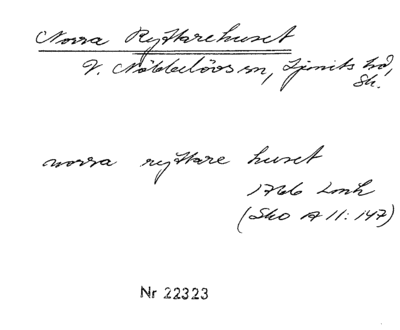 Norra Ryttarehuset
V. Nöbbelövs sn, Ljunits hd,
Sk.
norra ryttare huset
1766 Lonh
(Sko A 11: 147)
Nr 22323